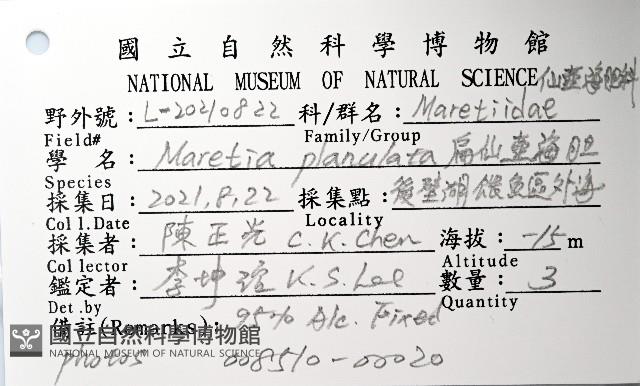 國立自然科學博物館
NATIONAL MUSEUM OF NATURAL SCIENCE 仙壺海胆科
野外號：L-20210822 科/群名：Maretiidae
Field# Family/Group
學 名：Maretia planulata 扁仙壺海胆
Species
採集日：2021,8,22 採集點：後壁湖餵魚區外海
Coll.Date Locality
採集者：陳正光 C.K.Chen 海拔：-15 m
Collector Altitude
鑑定者：李坤瑄 K.S.Lee 數量：3
Det.by Quantity
備註(Remarks)：95% Alc. Fixed
國立自然科學博物館
NATIONAL MUSEUM OF NATURAL SCIENCE
photos 008510-00020